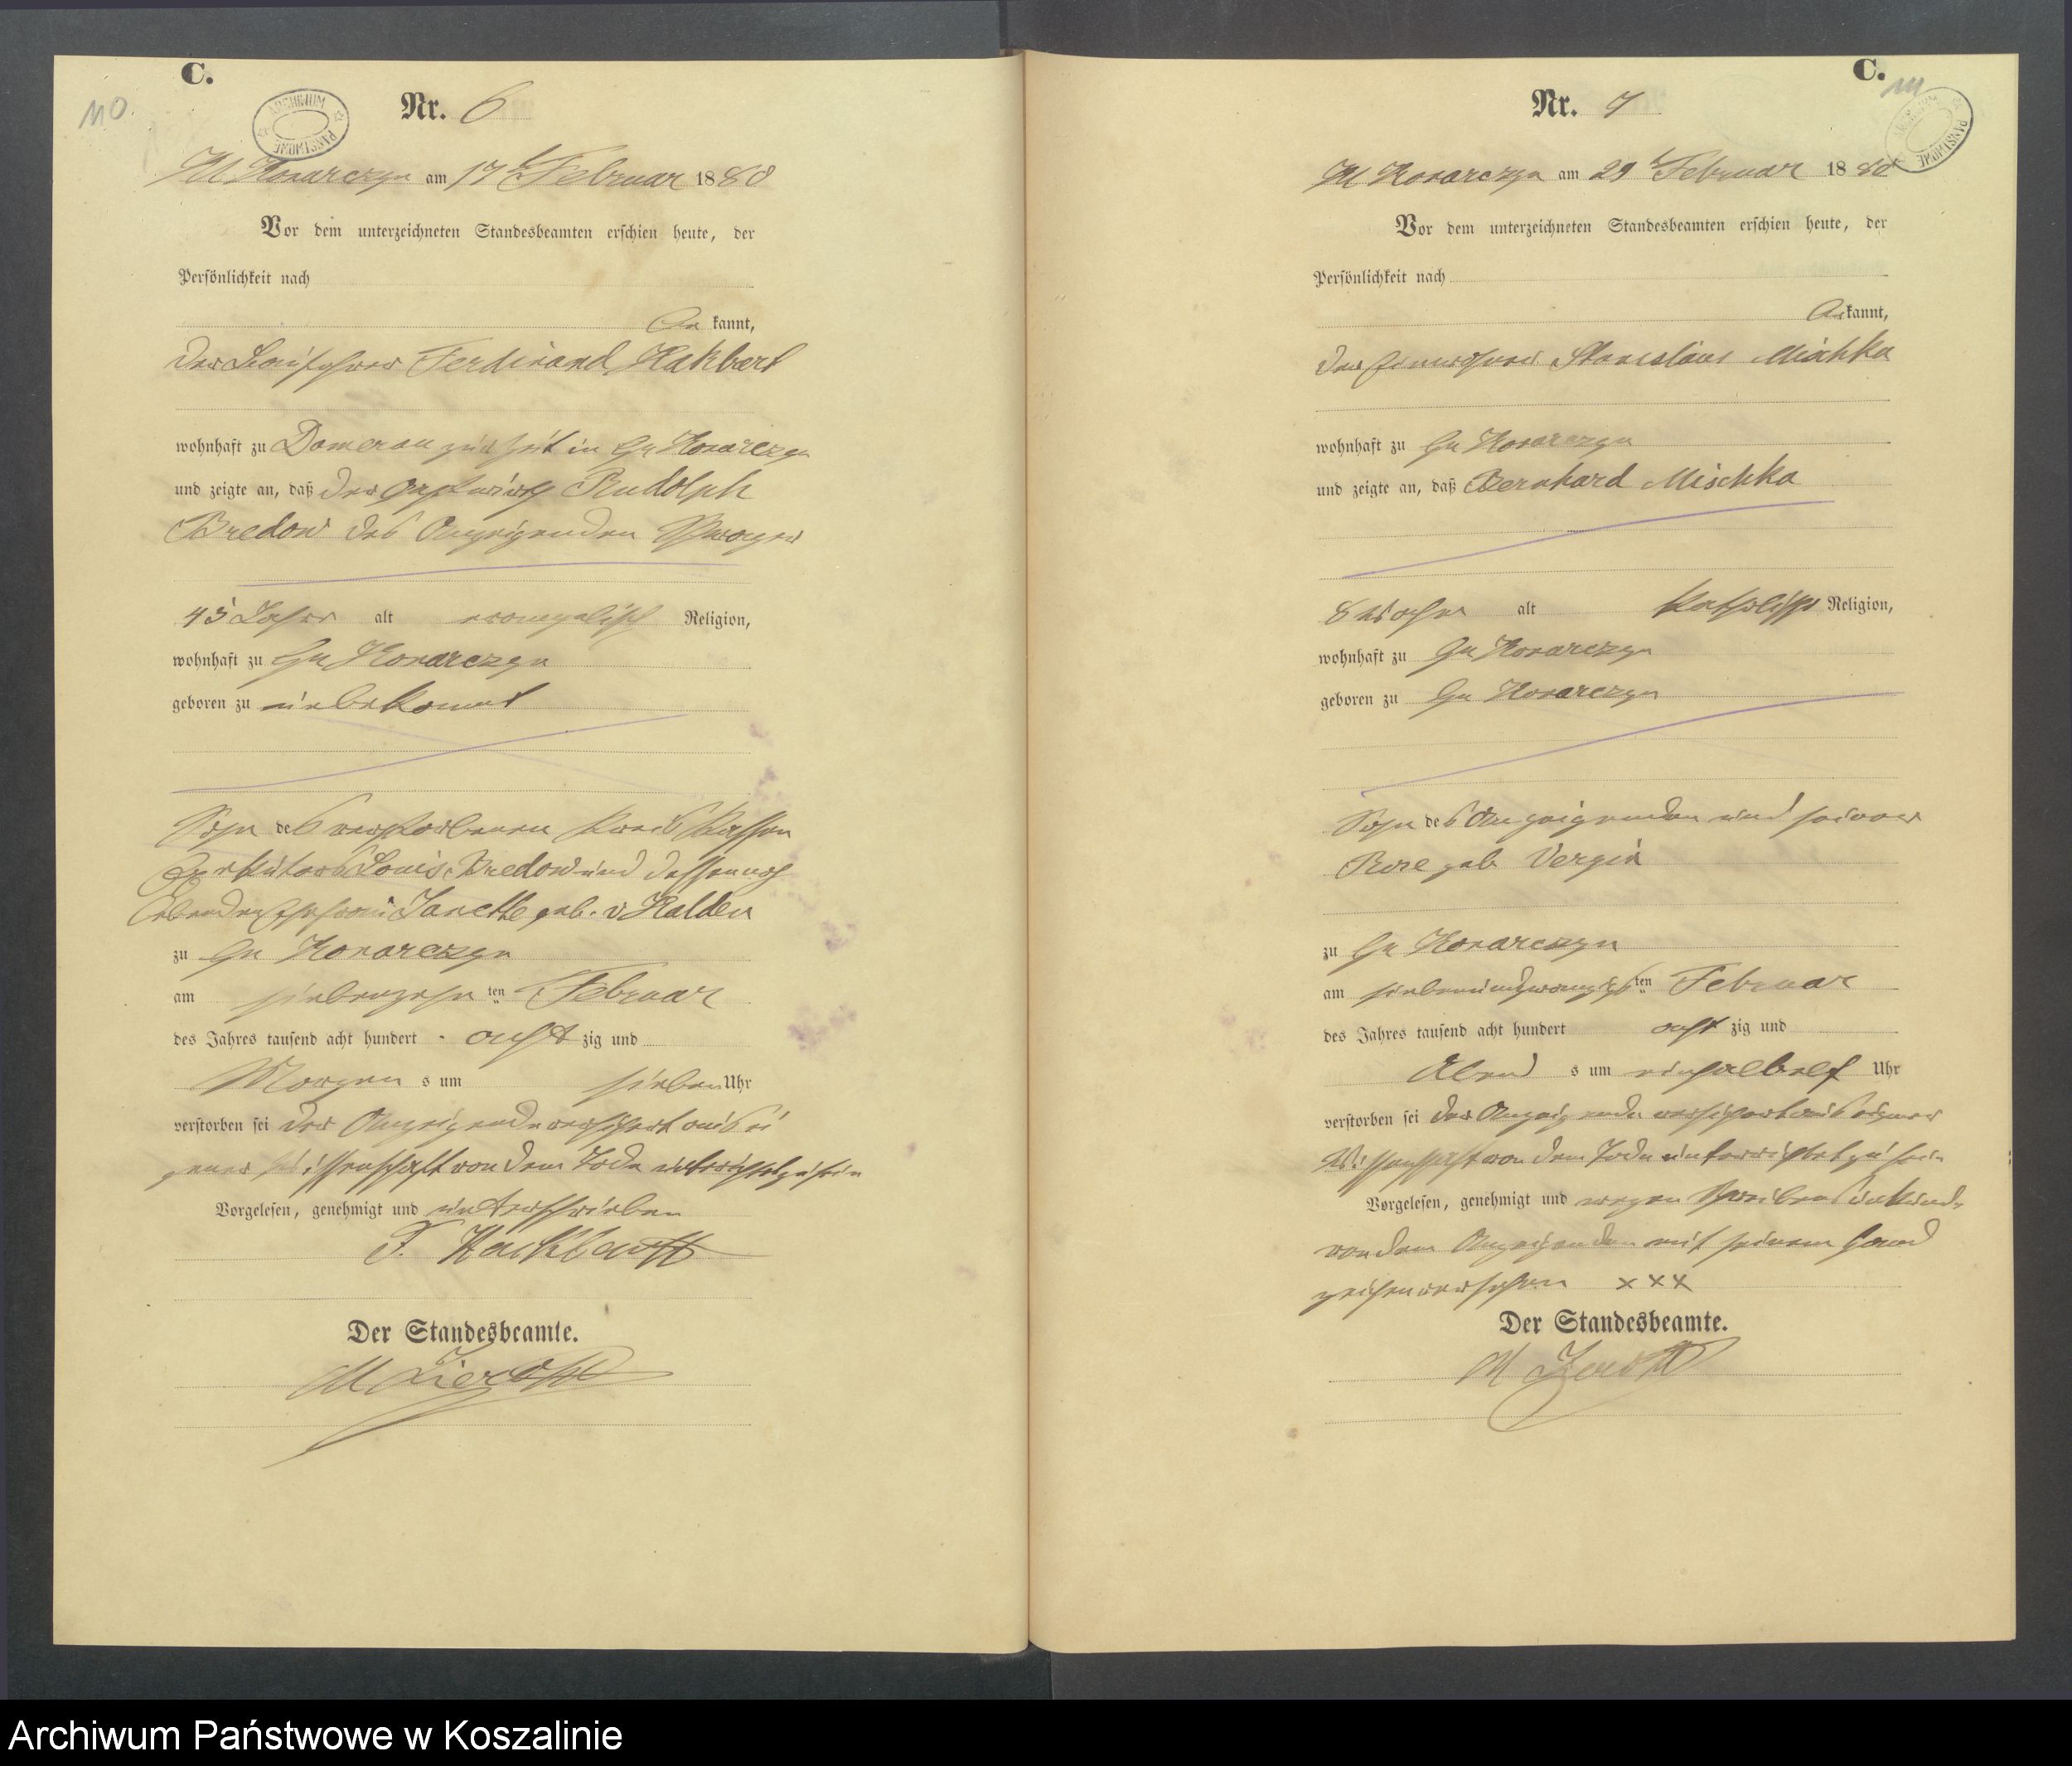 110
C.
ARCHIWUM PAŃSTWOWE
Nr. 6
Kl Konarczyn am 17t Februar 1880
Vor dem unterzeichneten Standesbeamten erschien heute, der
Persönlichkeit nach
kannt,
Der Ferdinand Hakbart
wohnhaft zu Damerau zur Zeit in Gr Konarczyn
und zeigte an, daß der Rudolph
Bredow des Anzeigenden Schwager
45 Jahre alt evangelisch Religion,
wohnhaft zu Gr Konarczyn
geboren zu unbekannt
Sohn des verstorbenen Kreis Kassen
Exekutors Louis Bredow und dessen noch
lebenden Ehefrau Janette geb. v Halden
zu Gr Konarczyn
am siebenzehn ten Februar
des Jahres tausend acht hundert acht zig und
Morgen s um sieben Uhr
verstorben sei Der Anzeigende versichert aus ei
gener Wissenschaft von dem Tode unterrichtet zu sein
Vorgelesen, genehmigt und unterschrieben
F. Hackbartt
Der Standesbeamte.
C.
111
ARCHIWUM PAŃSTWOWE
Nr. 7
Kl Konarczyn am 29t Februar 1880
Vor dem unterzeichneten Standesbeamten erschien heute, der
Persönlichkeit nach
kannt,
der Einwohner Stanislaus Mischka
wohnhaft zu Gr Konarczyn
und zeigte an, daß Bernhard Mischka
8 Wochen alt Katholisch Religion,
wohnhaft zu Gr Konarczyn
geboren zu Gr Konarczyn
Sohn des Anzeigenden und seiner
Rose geb Vergin
zu Gr Konarczyn
am siebenundzwanzigs ten Februar
des Jahres tausend acht hundert acht zig und
Abend s um einhalbelf Uhr
verstorben sei der Anzeigende versichert aus eigener
Wissenschaft von dem Tode unterrichtet zu sein
Vorgelesen, genehmigt und wegen Schreibensunkunde
von dem Anzeigenden mit seinem Hand
zeichen versehen x x x
Der Standesbeamte.
Archiwum Państwowe w Koszalinie